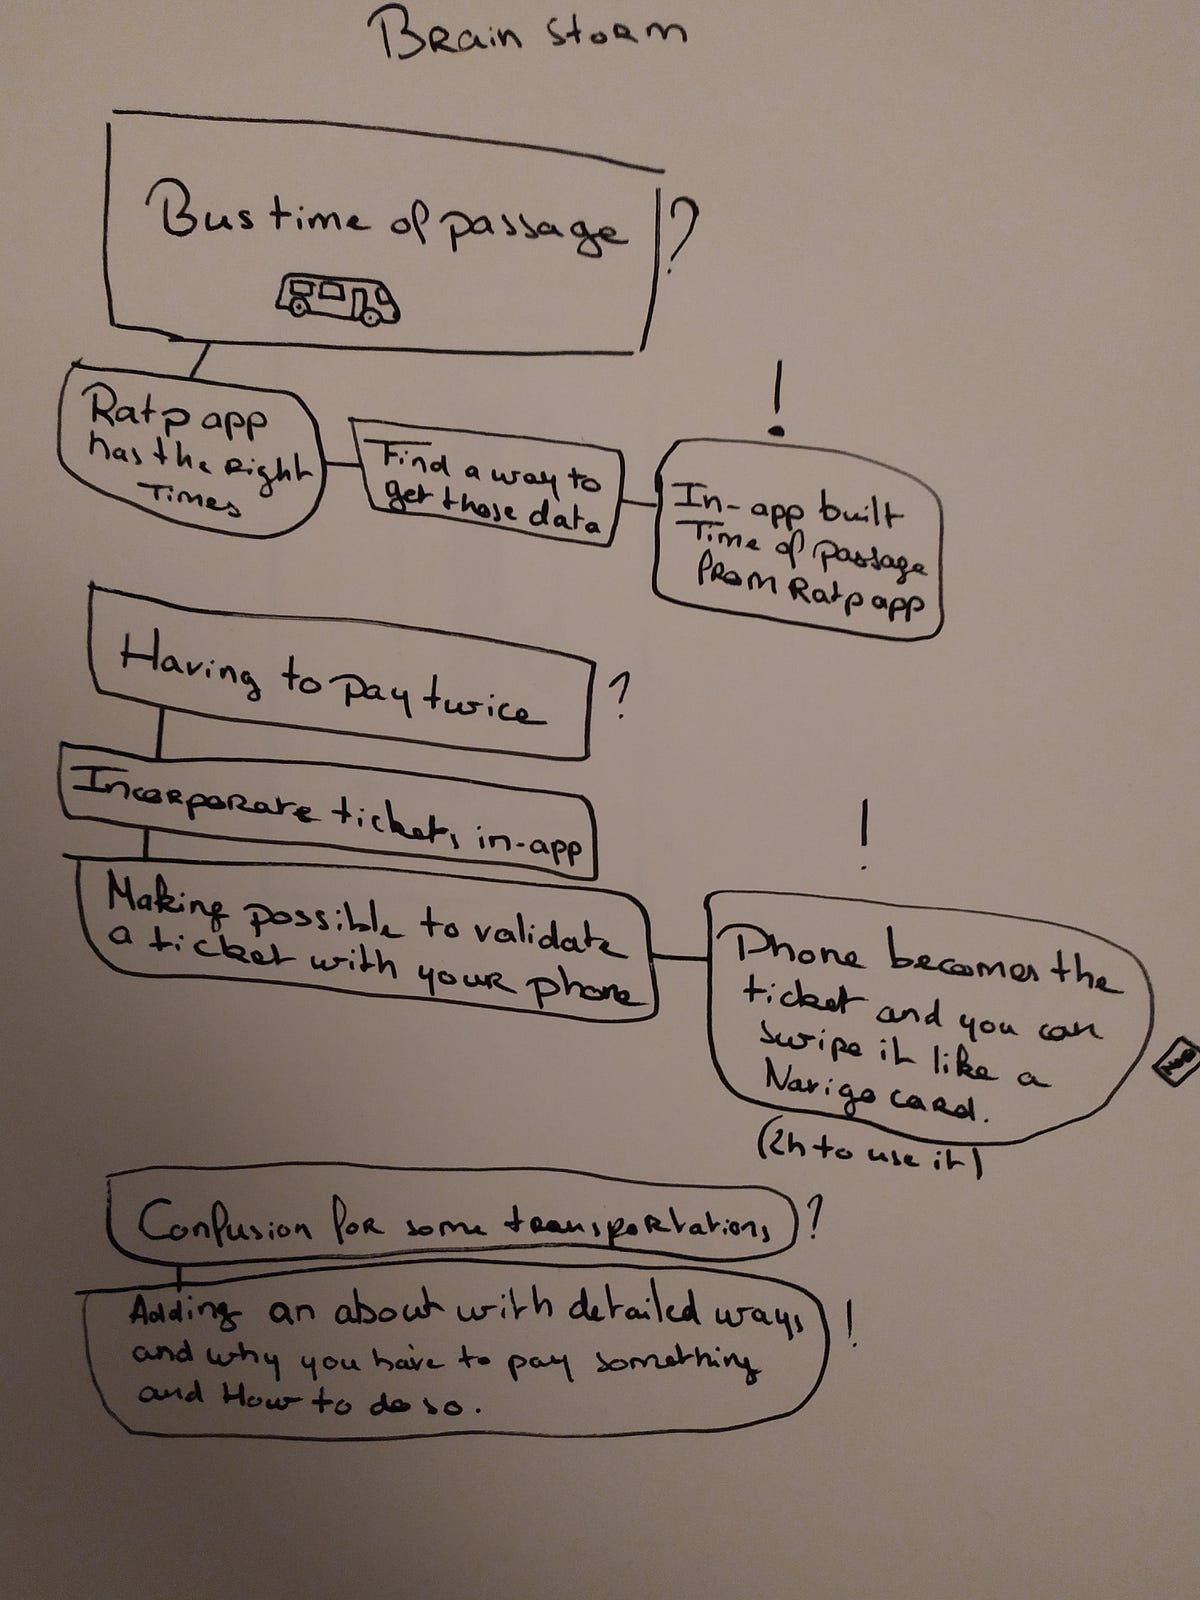 Brain storm
Bus time of passage ?
Ratp app
has the right
Times
Find a way to
get those data
!
In-app built
Time of passage
from Ratp app
Having to pay twice ?
Incorporate tickets in-app
Making possible to validate
a ticket with your phone
!
Phone becomes the
ticket and you can
swipe it like a
Navigo card.
(2h to use it)
Confusion for some transportations ?
Adding an about with detailed ways !
and why you have to pay something
and How to do so.